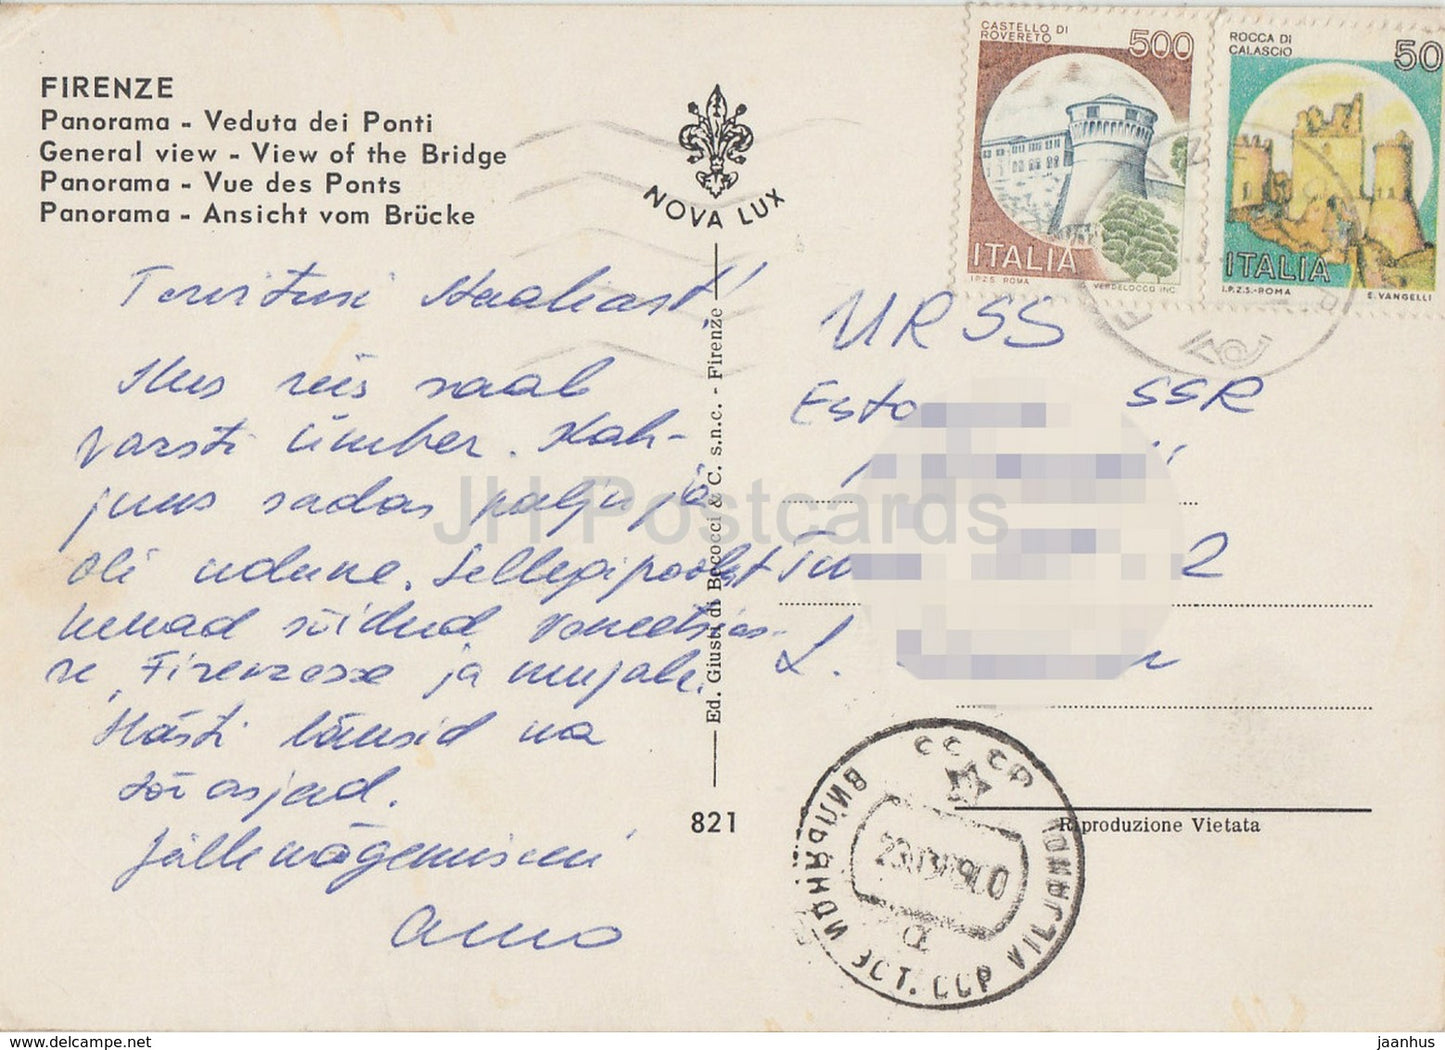 FIRENZE
Panorama - Veduta dei Ponti
General view - View of the Bridge
Panorama - Vue des Ponts
Panorama - Ansicht vom Brücke
NOVA LUX
CASTELLO DI
ROVERETO
500
ITALIA
I.P.Z.S. ROMA
VERDELOCCO INC.
ROCCA DI
CALASCIO
50
ITALIA
I.P.Z.S.-ROMA
E. VANGELLI
Tervitusi Maaliast!
Mus reis saab
varsti ümber. Kah-
juus sadas palju ja
oli udune. Sellegipoolest
menad sõidud Veneetsias-
se, Firenzesse ja mujale.
Hästi läksid ka
sõiasjad.
Jällenägemiseni
Arno
Ed. Giusti di Becocci & C. s.n.c. - Firenze
821
URSS
SSR
2
L.
Riproduzione Vietata
СССР
ВИЛЬЯНДИ ЭСТ. ССР VILJANDI
JH Postcards
www.delcampe.net
jaanhus